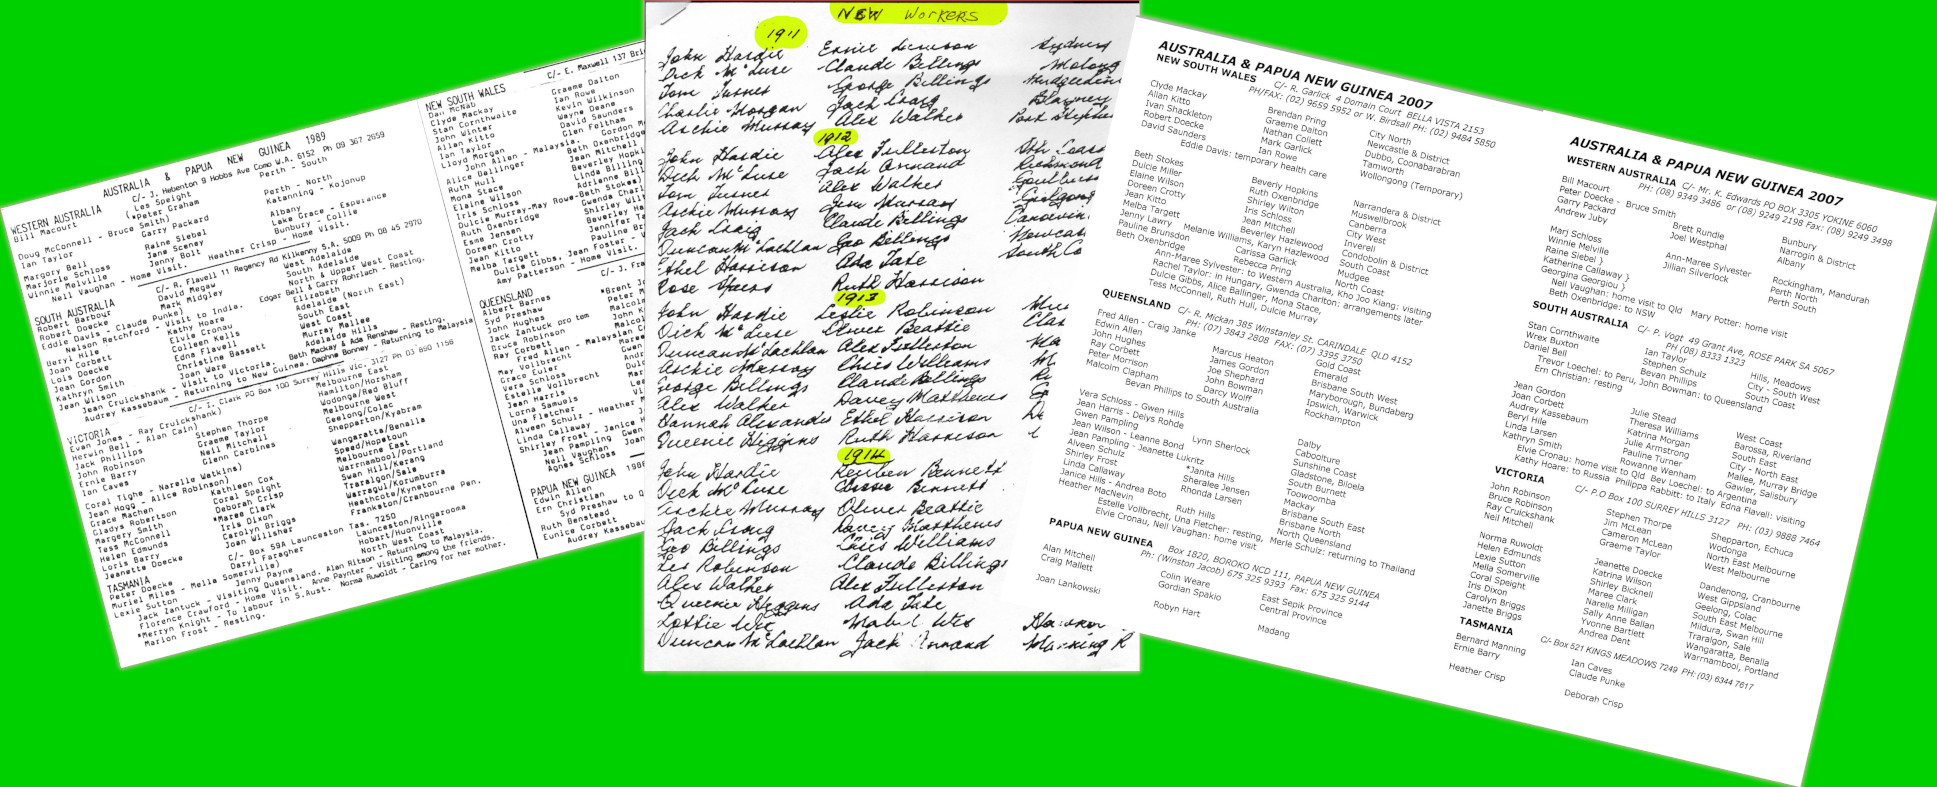 AUSTRALIA & PAPUA NEW GUINEA 1989
WESTERN AUSTRALIA C/- J. Hebenton 9 Hobbs Ave Como W.A. 6152 Ph 09 367 2659
Bill Macourt (Les Speight Perth - South
(*Peter Graham
Doug McConnell - Bruce Smith) Perth - North
Ian Taylor Garry Packard Katanning - Kojonup
Margory Bell Raine Siebel Albany
Marjorie Schloss Jane Sceney Lake Grace - Esperance
Winnie Melville Jenny Bolt Bunbury - Collie
Nell Vaughan - Home Visit. Heather Crisp - Home Visit.
SOUTH AUSTRALIA C/- R. Flavell 11 Regency Rd Kilkenny S.A. 5009 Ph 08 45 2970
Robert Barbour David Megaw West Adelaide
Robert Doecke Mark Midgley South Adelaide
Eddie Davis - Claude Punke) North & Upper West Coast
Nelson Retchford - Visit to India. Edgar Bell & Garry Rohrlach - Resting.
Beryl Hile Kathy Hoare Elizabeth
Joan Corbett Elvie Cronau Adelaide (North East)
Lois Doecke Colleen Kells South East
Jean Gordon Edna Flavell West Coast
Kathryn Smith Christine Bassett Murray Mallee
Jean Wilson Joan Ware Adelaide Hills
Jean Cruickshank - Visit to Victoria. Beth Mackay & Ada Renshaw - Resting.
Audrey Kassebaum - Returning to New Guinea. Daphne Bonney - Returning to Malaysia
VICTORIA C/- I. Clark PO Box 100 Surrey Hills Vic. 3127 Ph 03 890 1156
Evan Jones - Ray Cruickshank) Melbourne East
Herwin Bell - Alan Cain) Hamilton/Horsham
Jack Phillips Stephen Thorpe Wodonga/Red Bluff
John Robinson Graeme Taylor Melbourne West
Ernie Barry Neil Mitchell Geelong/Colac
Ian Caves Glenn Carbines Shepparton/Kyabram
Coral Tighe - Narelle Watkins) Wangaratta/Benalla
Jean Hogg - Alice Robinson) Speed/Hopetoun
Grace Machen Kathleen Cox Melbourne East
Gladys Robertson Coral Speight Warrnambool/Portland
Margery Smith Deborah Crisp Swan Hill/Kerang
Tess McConnell *Maree Clark Traralgon/Sale
Helen Edmunds Iris Dixon Warragul/Korumburra
Loris Barry Carolyn Briggs Heathcote/Kyneton
Jeanette Doecke Joan Willsher Frankston/Cranbourne Pen.
TASMANIA C/- Box 59A Launceston Tas. 7250
Peter Doecke Daryl Faragher Launceston/Ringarooma
Muriel Miles - Mella Somerville) Hobart/Huonville
Lexie Sutton Jenny Payne North West Coast
Jack Jantuck - Visiting Queensland. Alan Ritson - Returning to Malaysia.
Florence Crawford - Home Visit. Anne Paynter - Visiting among the friends.
*Merryn Knight - To labour in S.Aust. Norma Ruwoldt - Caring for her mother.
Marion Frost - Resting.
NEW SOUTH WALES C/- E. Maxwell 137 Bri
Dan McNab Graeme Dalton
Clyde Mackay Ian Rowe
Stan Cornthwaite Kevin Wilkinson
John Winter Wayne Deane
Allan Kitto David Saunders
Ian Taylor Glen Feltham
Lloyd Morgan Gordon M
John Allen - Malaysia.
Alice Ballinger Beth Oxenbridge
Ruth Hull Jean Mitchell
Mona Stace Beverley Hopki
Elaine Wilson Linda Billing
Iris Schloss Adrienne Bill
Dulcie Murray-May Rowe-Beth Stokes)
Ruth Oxenbridge Gwenda Charlt
Esme Jensen Shirley Wil
Doreen Crotty Beverley Ha
Jean Kitto Jennifer Ta
Melba Targett Pauline Br
Dulcie Gibbs, Jean Foster - V
Amy Patterson - Home Visit.
QUEENSLAND C/- J. Fre
Albert Barnes *Brent J
Syd Preshaw Peter M
John Hughes Malcolm
Jack Jantuck pro tem John K
Bruce Robinson Malcol
Ray Corbett Ian C
Fred Allen - Malaysia
May Vollbrecht Maure
Grace Euler Gwen
Vera Schloss Mare
Estelle Vollbrecht Dul
Jean Harris
Lorna Samuels
Una Fletcher
Alveen Schulz - Heather M
Linda Callaway
Shirley Frost - Janice H
Jean Pampling Gwen
Nell Vaughan
Agnes Schloss
PAPUA NEW GUINEA 1988
Edwin Allen
Ern Christian
Syd Preshaw to Q
Ruth Benstead
Eunice Corbett
Audrey Kassebau
NEW WORKERS
1911
John Hardie Ernie Jamison Sydney
Dick McLuse Claude Billings Molong
Tom Turner George Billings
Charlie Morgan Jack Craig Blayney
Archie Murray Alex Walker Port Stephen
1912
John Hardie Alex Fullerton Sth Coast
Dick McLuse Jack Annand Richmond
Tom Turner Alex Walker Goulburn
Archie Murray Jim Murray Gulgong
Jack Craig Claude Billings Canowin.
Duncan McLachlan Geo Billings Newcas
Ethel Harrison Ada Tate South Co
Rose Spiers Ruth Harrison
1913
John Hardie Leslie Robinson
Dick McLuse Oliver Beattie Clar
Duncan McLachlan Alex Fullerton
Archie Murray Chris Williams
George Billings Claude Billings
Alex Walker Davey Matthews
Hannah Alexander Ethel Harrison
Queenie Higgins Ruth Harrison
1914
John Hardie Reuben Bennett
Dick McLuse Bennett
Archie Murray Oliver Beattie
Jack Craig Davey Matthews
Geo Billings Chris Williams
Les Robinson Claude Billings
Alex Walker Alex Fullerton
Queenie Higgins Ada Tate
Lottie Wes Mabel Wes
Duncan McLachlan Jack Annand Manning R
AUSTRALIA & PAPUA NEW GUINEA 2007
NEW SOUTH WALES C/- R. Garlick 4 Domain Court BELLA VISTA 2153
PH/FAX: (02) 9659 5952 or W. Birdsall PH: (02) 9484 5850
Clyde Mackay Brendan Pring City North
Allan Kitto Graeme Dalton Newcastle & District
Ivan Shackleton Nathan Collett Dubbo, Coonabarabran
Robert Doecke Mark Garlick Tamworth
David Saunders Ian Rowe Wollongong (Temporary)
Eddie Davis: temporary health care
Beth Stokes Beverly Hopkins Narrandera & District
Dulcie Miller Ruth Oxenbridge Muswellbrook
Elaine Wilson Shirley Wilton Canberra
Doreen Crotty Iris Schloss City West
Jean Kitto Jean Mitchell Inverell
Melba Targett Beverley Hazlewood Condobolin & District
Jenny Lawry Melanie Williams, Karyn Hazlewood South Coast
Pauline Brunsdon Carissa Garlick Mudgee
Beth Oxenbridge Rebecca Pring North Coast
Ann-Maree Sylvester: to Western Australia, Kho Joo Kiang: visiting
Rachel Taylor: in Hungary, Gwenda Charlton: arrangements later
Dulcie Gibbs, Alice Ballinger, Mona Stace,
Tess McConnell, Ruth Hull, Dulcie Murray
QUEENSLAND C/- R. Mickan 385 Winstanley St. CARINDALE QLD 4152
PH: (07) 3843 2808 FAX: (07) 3395 3750
Fred Allen - Craig Janke Marcus Heaton Gold Coast
Edwin Allen James Gordon Emerald
John Hughes Joe Shephard Brisbane South West
Ray Corbett John Bowman Maryborough, Bundaberg
Peter Morrison Darcy Wolff Ipswich, Warwick
Malcolm Clapham Rockhampton
Bevan Phillips to South Australia
Vera Schloss - Gwen Hills Dalby
Jean Harris - Delys Rohde Caboolture
Gwen Pampling Lynn Sherlock Sunshine Coast
Jean Wilson - Leanne Bond Gladstone, Biloela
Jean Pampling - Jeanette Lukritz South Burnett
Alveen Schulz *Janita Hills Toowoomba
Shirley Frost Sheralee Jensen Mackay
Linda Callaway Rhonda Larsen Brisbane South East
Janice Hills - Andrea Boto Brisbane North
Heather MacNevin Ruth Hills North Queensland
Estelle Vollbrecht, Una Fletcher: resting, Merle Schulz: returning to Thailand
Elvie Cronau, Neil Vaughan: home visit
PAPUA NEW GUINEA Box 1820, BOROKO NCD 111, PAPUA NEW GUINEA
Ph: (Winston Jacob) 675 325 9393 Fax: 675 325 9144
Alan Mitchell Colin Weare East Sepik Province
Craig Mallett Gordian Spakio Central Province
Joan Lankowski Robyn Hart Madang
AUSTRALIA & PAPUA NEW GUINEA 2007
WESTERN AUSTRALIA C/- Mr. K. Edwards PO BOX 3305 YOKINE 6060
PH: (08) 9349 3486 or (08) 9249 2198 Fax: (08) 9249 3498
Bill Macourt Brett Rundle Bunbury
Peter Doecke - Bruce Smith Joel Westphal Narrogin & District
Garry Packard Albany
Andrew Juby
Marj Schloss Ann-Maree Sylvester Rockingham, Mandurah
Winnie Melville Jillian Silverlock Perth North
Raine Siebel } Perth South
Katherine Callaway }
Georgina Georgiou }
Nell Vaughan: home visit to Qld Mary Potter: home visit
Beth Oxenbridge: to NSW
SOUTH AUSTRALIA C/- P. Vogt 49 Grant Ave, ROSE PARK SA 5067
PH (08) 8333 1323
Stan Cornthwaite Ian Taylor Hills, Meadows
Wrex Buxton Stephen Schulz City - South West
Daniel Bell Bevan Phillips South Coast
Trevor Loechel: to Peru, John Bowman: to Queensland
Ern Christian: resting
Jean Gordon Julie Stead West Coast
Joan Corbett Theresa Williams Barossa, Riverland
Audrey Kassebaum Katrina Morgan South East
Beryl Hile Julie Armstrong City - North East
Linda Larsen Pauline Turner Mallee, Murray Bridge
Kathryn Smith Rowanne Wenham Gawler, Salisbury
Elvie Cronau: home visit to Qld Bev Loechel: to Argentina
Kathy Hoare: to Russia Philippa Rabbitt: to Italy Edna Flavell: visiting
VICTORIA C/- P.O Box 100 SURREY HILLS 3127 PH: (03) 9888 7464
John Robinson Stephen Thorpe Shepparton, Echuca
Bruce Robinson Jim McLean Wodonga
Ray Cruickshank Cameron McLean North East Melbourne
Neil Mitchell Graeme Taylor West Melbourne
Norma Ruwoldt Jeanette Doecke Dandenong, Cranbourne
Helen Edmunds Katrina Wilson West Gippsland
Lexie Sutton Shirley Bicknell Geelong, Colac
Mella Somerville Maree Clark South East Melbourne
Coral Speight Narelle Milligan Mildura, Swan Hill
Iris Dixon Sally Anne Ballan Traralgon, Sale
Carolyn Briggs Yvonne Bartlett Wangaratta, Benalla
Janette Briggs Andrea Dent Warrnambool, Portland
TASMANIA C/- Box 521 KINGS MEADOWS 7249 PH: (03) 6344 7617
Bernard Manning Ian Caves
Ernie Barry Claude Punke
Heather Crisp Deborah Crisp